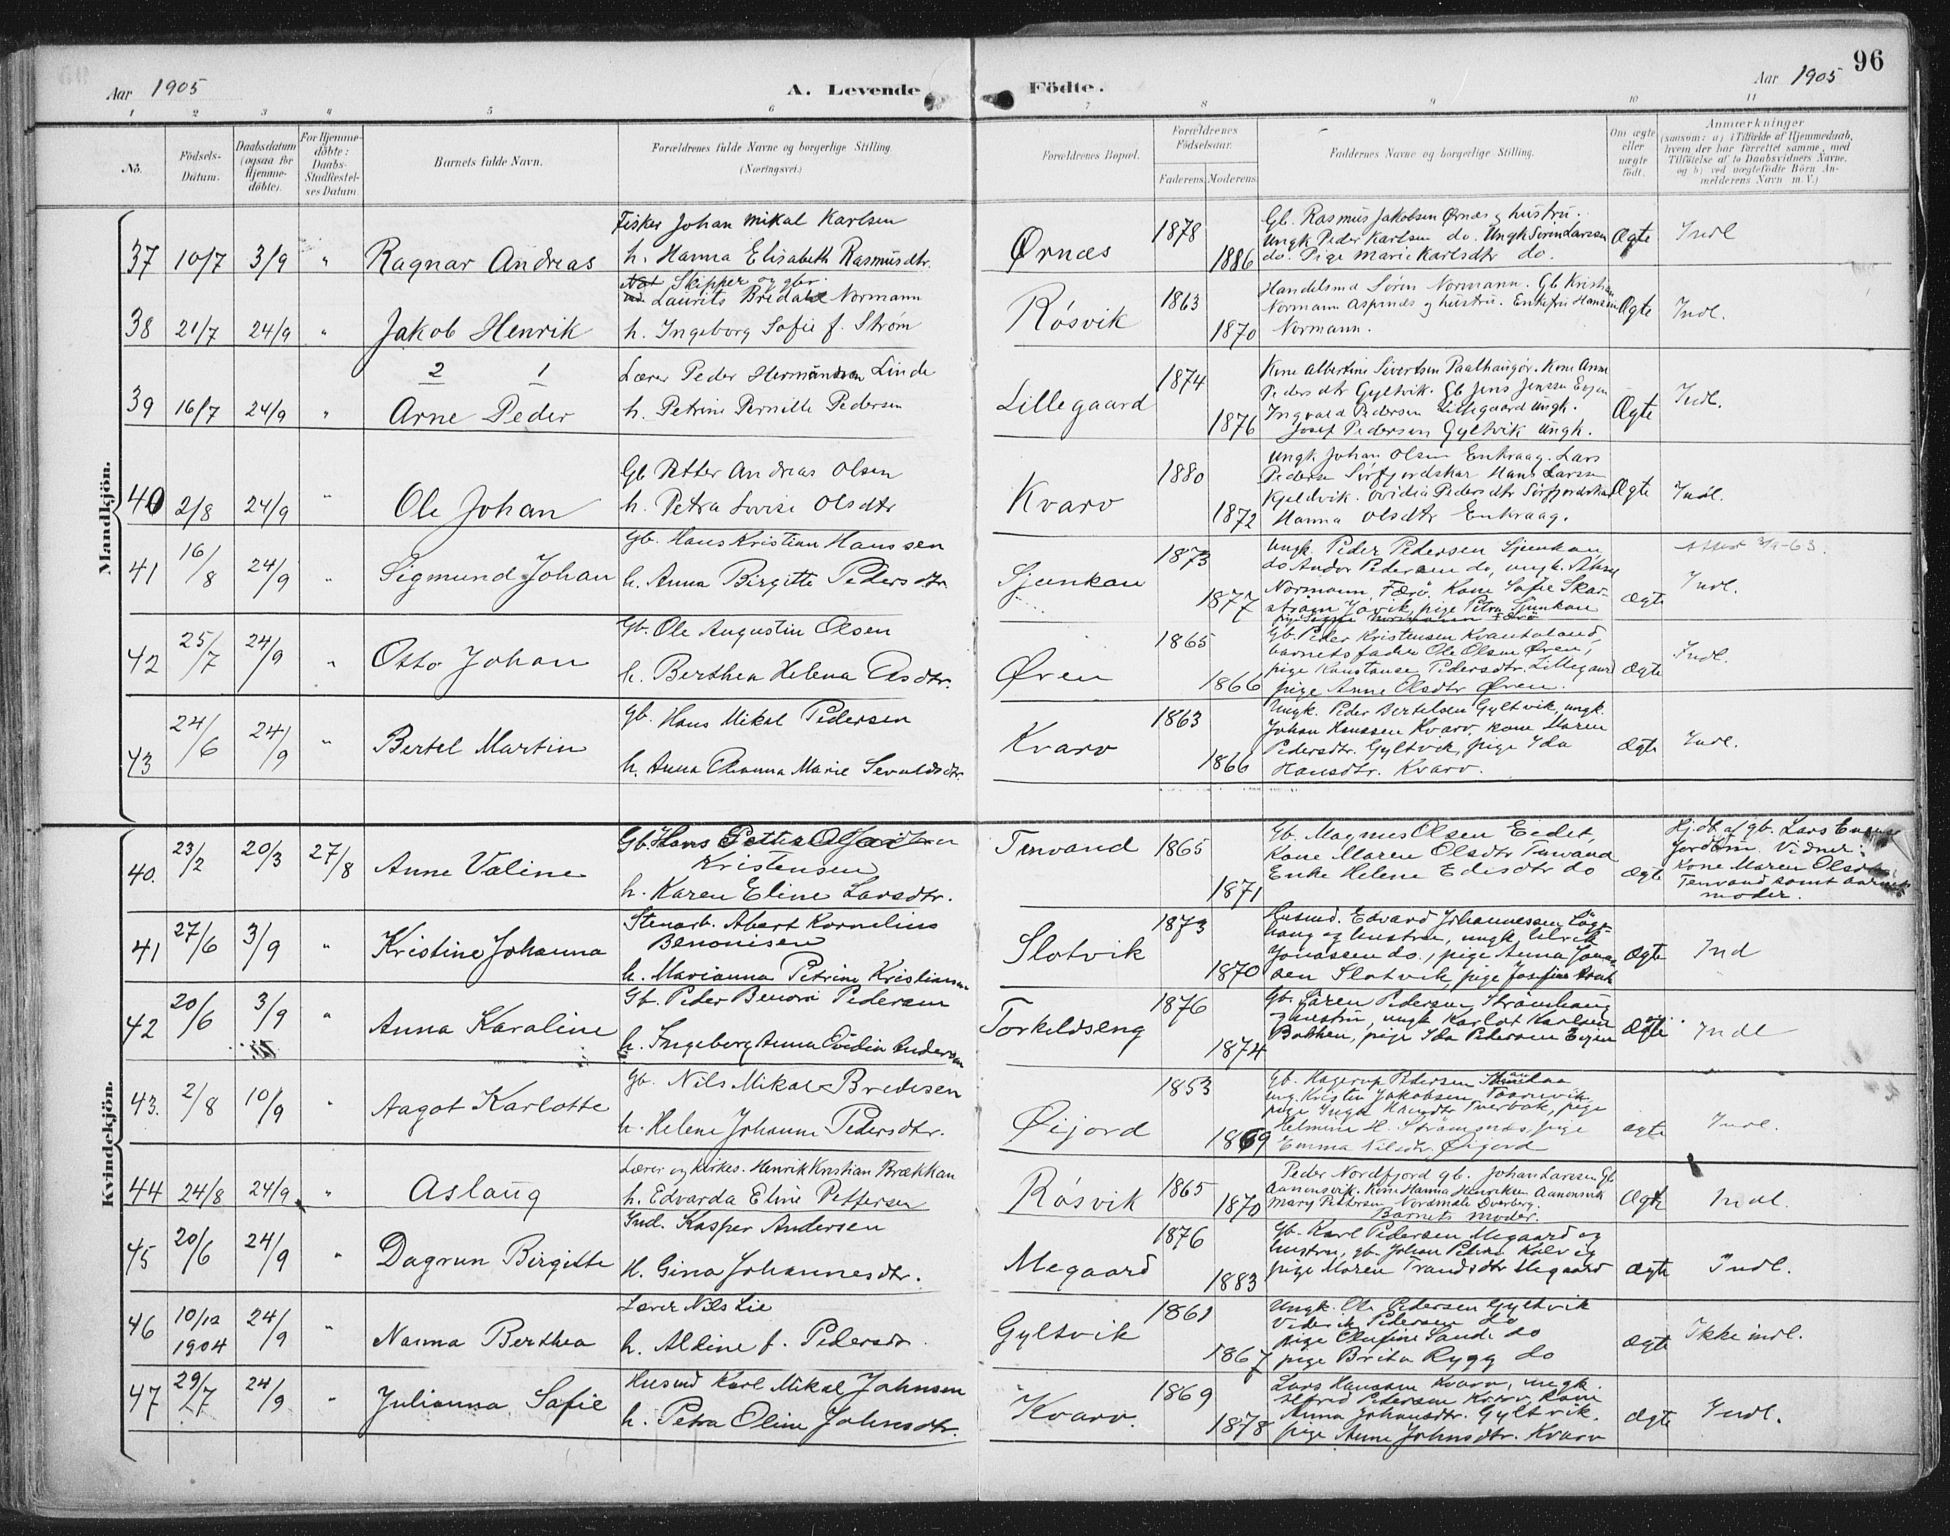 96
Aar 1905
A. Levende
Födte.
Aar 1905
1 2 3 4 5 6 7 8 9 10 11
No.
Födsels-Datum.
Daabsdatum (ogsaa for Hjemme-döbte).
For Hjemme-döbte: Daabs-Stadfæstelses Datum
Barnets fulde Navn.
Forældrenes fulde Navne og borgerlige Stilling. (Næringsvei.)
Forældrenes Bopæl.
Forældrenes Födselsaar.
Faderens Moderens
Faddernes Navne og borgerlige Stilling.
Om ægte eller uægte födt.
Anmærkninger
(saasom: a) i Tilfælde af Hjemmedaab, hvem der har forrettet samme, med Tilföielse af to Daabsvidners Navne, og b) ved uægtefödte Börn Anmelderens Navn m. V.)
Mandkjön.
37 10/7 3/9 " Ragnar Andreas
Fisker Johan Mikal Karlsen
h. Hanna Elisabeth Rasmusdtr.
Ørnæs 1878 1886
Gb. Rasmus Jakobsen Ørnæs og hustru.
Ungk Peder Karlsen do. Ungk Sörin Larsen
do. Pige Marie Karlsdtr do.
Ægte Indl
38 21/7 24/9 " Jakob Henrik
Skipper og gbr.
Laurits Bredahl Normann
h. Ingeborg Sofie f. Strøm
Røsvik 1863 1870
Handelsmd Sörin Normann. Gb Kristian
Normann Aspenes og hustru. Enkefru Hansine
Normann.
Ægte Indl.
2 1
39 16/7 24/9 " Arne Peder
Lærer Peder Hermansen Linde
h. Petrine Pernille Pedersen
Lillegaard 1874 1876
Kone Albertine Sivertsen Paalhaugör. Kone Anne
Pedersdtr Gyltvik. Gb Jens Jenssen Evjen
Ingvald Pedersen Lillegaard Ungk.
Josef Pedersen Gyltvik Ungk.
Ægte Indl.
40 2/8 24/9 " Ole Johan
Gb Petter Andreas Olsen
h. Petra Lovise Olsdtr
Kvarv 1880 1872
Ungk Johan Olsen Enkraag. Lars
Pedersen Sörfjordskar Hans Larssen
Kjeldvik. Ovidia Pedersdtr Sörfjordskar
Hanna Olsdtr Enkraag.
Ægte Indl.
41 16/8 24/9 " Sigmund Johan
Gb. Hans Kristian Hanssen
h. Anna Birgitte Pedersdtr.
Sjunkan 1873 1877
Ungk. Peder Pedersen Sjunkan,
do Andor Pedersen do, ungk.
Normann, Færö, Kone Sofie Skar-
strøm Jövik, pige Petra Sjunkan
Ægte Indl.
42 25/7 24/9 " Otto Johan
Gb. Ole Augustin Olsen
h. Berthea Helena Asdtr.
Øren 1865 1866
Gb. Peder Kristensen Kvantoland,
barnets fader Ole Olsen Øren,
pige Konstanse Pedersdtr. Lillegaard
pige Anne Olsdtr Øren.
Ægte Indl.
43 24/6 24/9 " Bertel Martin
Gb. Hans Mikal Pedersen
h. Anna Oleanna Marie Sevaldsdtr.
Kvarv 1863 1866
Ungk. Peder Bertelsen Gyltvik, ungk.
Johan Hanssen Kvarv, kone Maren
Pedersdtr. Gyltvik, pige Ida
Hansdtr. Kvarv.
Ægte Indl.
Kvindekjön.
40. 23/2 20/3 27/8 Anne Valine
Gb. Hans Petter
Kristensen
h. Karen Eline Larsdtr.
Tenvand 1865 1871
Gb. Magnus Olsen Eedet,
Kone Maren Olsdtr Tenvand
Enke Helene Edisdtr do
Ægte
Hj.db. af gb. Lars
Jordbru. Vidner:
Kone Maren Olsdtr.
Tenvand samt barnets
moder.
41 27/6 3/9 " Kristine Johanna
Stenarb. Abert Kornelius
Benonisen
h. Marianna Petrine Kristiansen
Slotvik 1873 1870
Husmd. Edvard Johannessen Lögs-
haug og hustru, ungk Ulrik
Jonassen do., pige Anna Jonas-
sen Slotvik, pige Josefine
Ægte Ind
42 20/6 3/9 " Anna Karaline
Gb. Peder Benoni Pedersen
h. Ingeborg Anna Ovidia Andersen
Torkeldseng 1876 1874
Gb. Sören Pedersen Strömhaug
og hustru, ungk Karlot Karlsen
Bakken, pige Ida Pedersen Evjen
Ægte Indl
43. 2/8 10/9 " Aagot Karlotte
Gb. Nils Mikal Bredesen
h. Helene Johanne Pedersdtr.
Øijord 1853 1869
Gb. Hagerup Pedersen
ung. Kristen Jakobsen Taarnvik,
pige Inga Hansdtr Tverbak, pige
Helmine H. Strömsnes, pige
Emma Nilsdtr. Øijord
ægte Indl.
44 24/8 24/9 " Aslaug
Lærer og kirkes. Henrik Kristian Brækkan
h. Edvarda Eline Pettersen
Røsvik 1865 1870
Peder Nordfjord gb. Johan Larsen Gb
Aanonsvik. Kone Hanna Henriksen Aanonsvik
Mary Pettersen Nordmale Dverberg.
Barnets moder.
Ægte Indl.
45 20/6 24/9 " Dagrun Birgitte
Ind. Kasper Andersen
H. Gina Johannesdtr.
Megaard 1876 1883
Gb. Karl Pedersen Megaard og
hustru, gb. Johan Petter Kalvig
pige Maren Trandsdtr Megaard
Ægte Indl.
46 10/12 1904 24/9 " Nanna Berthea
Lærer Nils Lie
h. Aldine f. Pedersdr.
Gyltvik 1861 1867
Ungk. Ole Pedersen Gyltvik
Vederik Pedersen do
pige Olufine Sande do
pige Brita Rygg do
Ægte Ikke indl.
47 29/7 24/9 " Julianna Sofie
Husmd Karl Mikal Johnsen
h. Petra Oline Johnsdtr.
Kvarv. 1869 1878
Lars Hanssen Kvarv, ungk.
Alfred Pedersen Kvarv, Kone
Anna Johansdtr. Gyltvik.
pige Anne Johnsdtr. Kvarv
Ægte Indl.